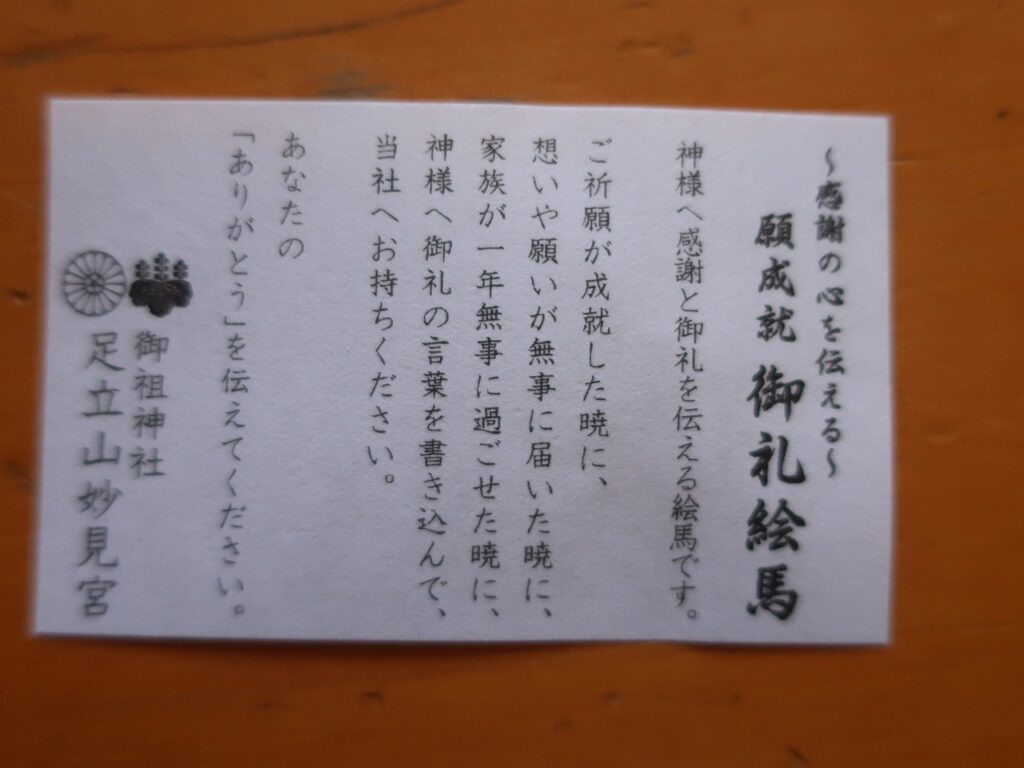 ～感謝の心を伝える～
願成就 御礼絵馬
神様へ感謝と御礼を伝える絵馬です。
ご祈願が成就した暁に、
想いや願いが無事に届いた暁に、
家族が一年無事に過ごせた暁に、
神様へ御礼の言葉を書き込んで、
当社へお持ちください。
あなたの
「ありがとう」を伝えてください。
御祖神社
足立山妙見宮